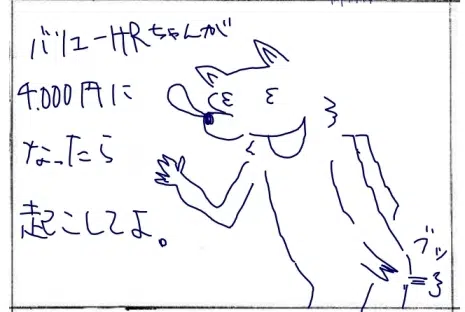 バリューHRちゃんが
4.000円に
なったら
起こしてよ。
ブッ